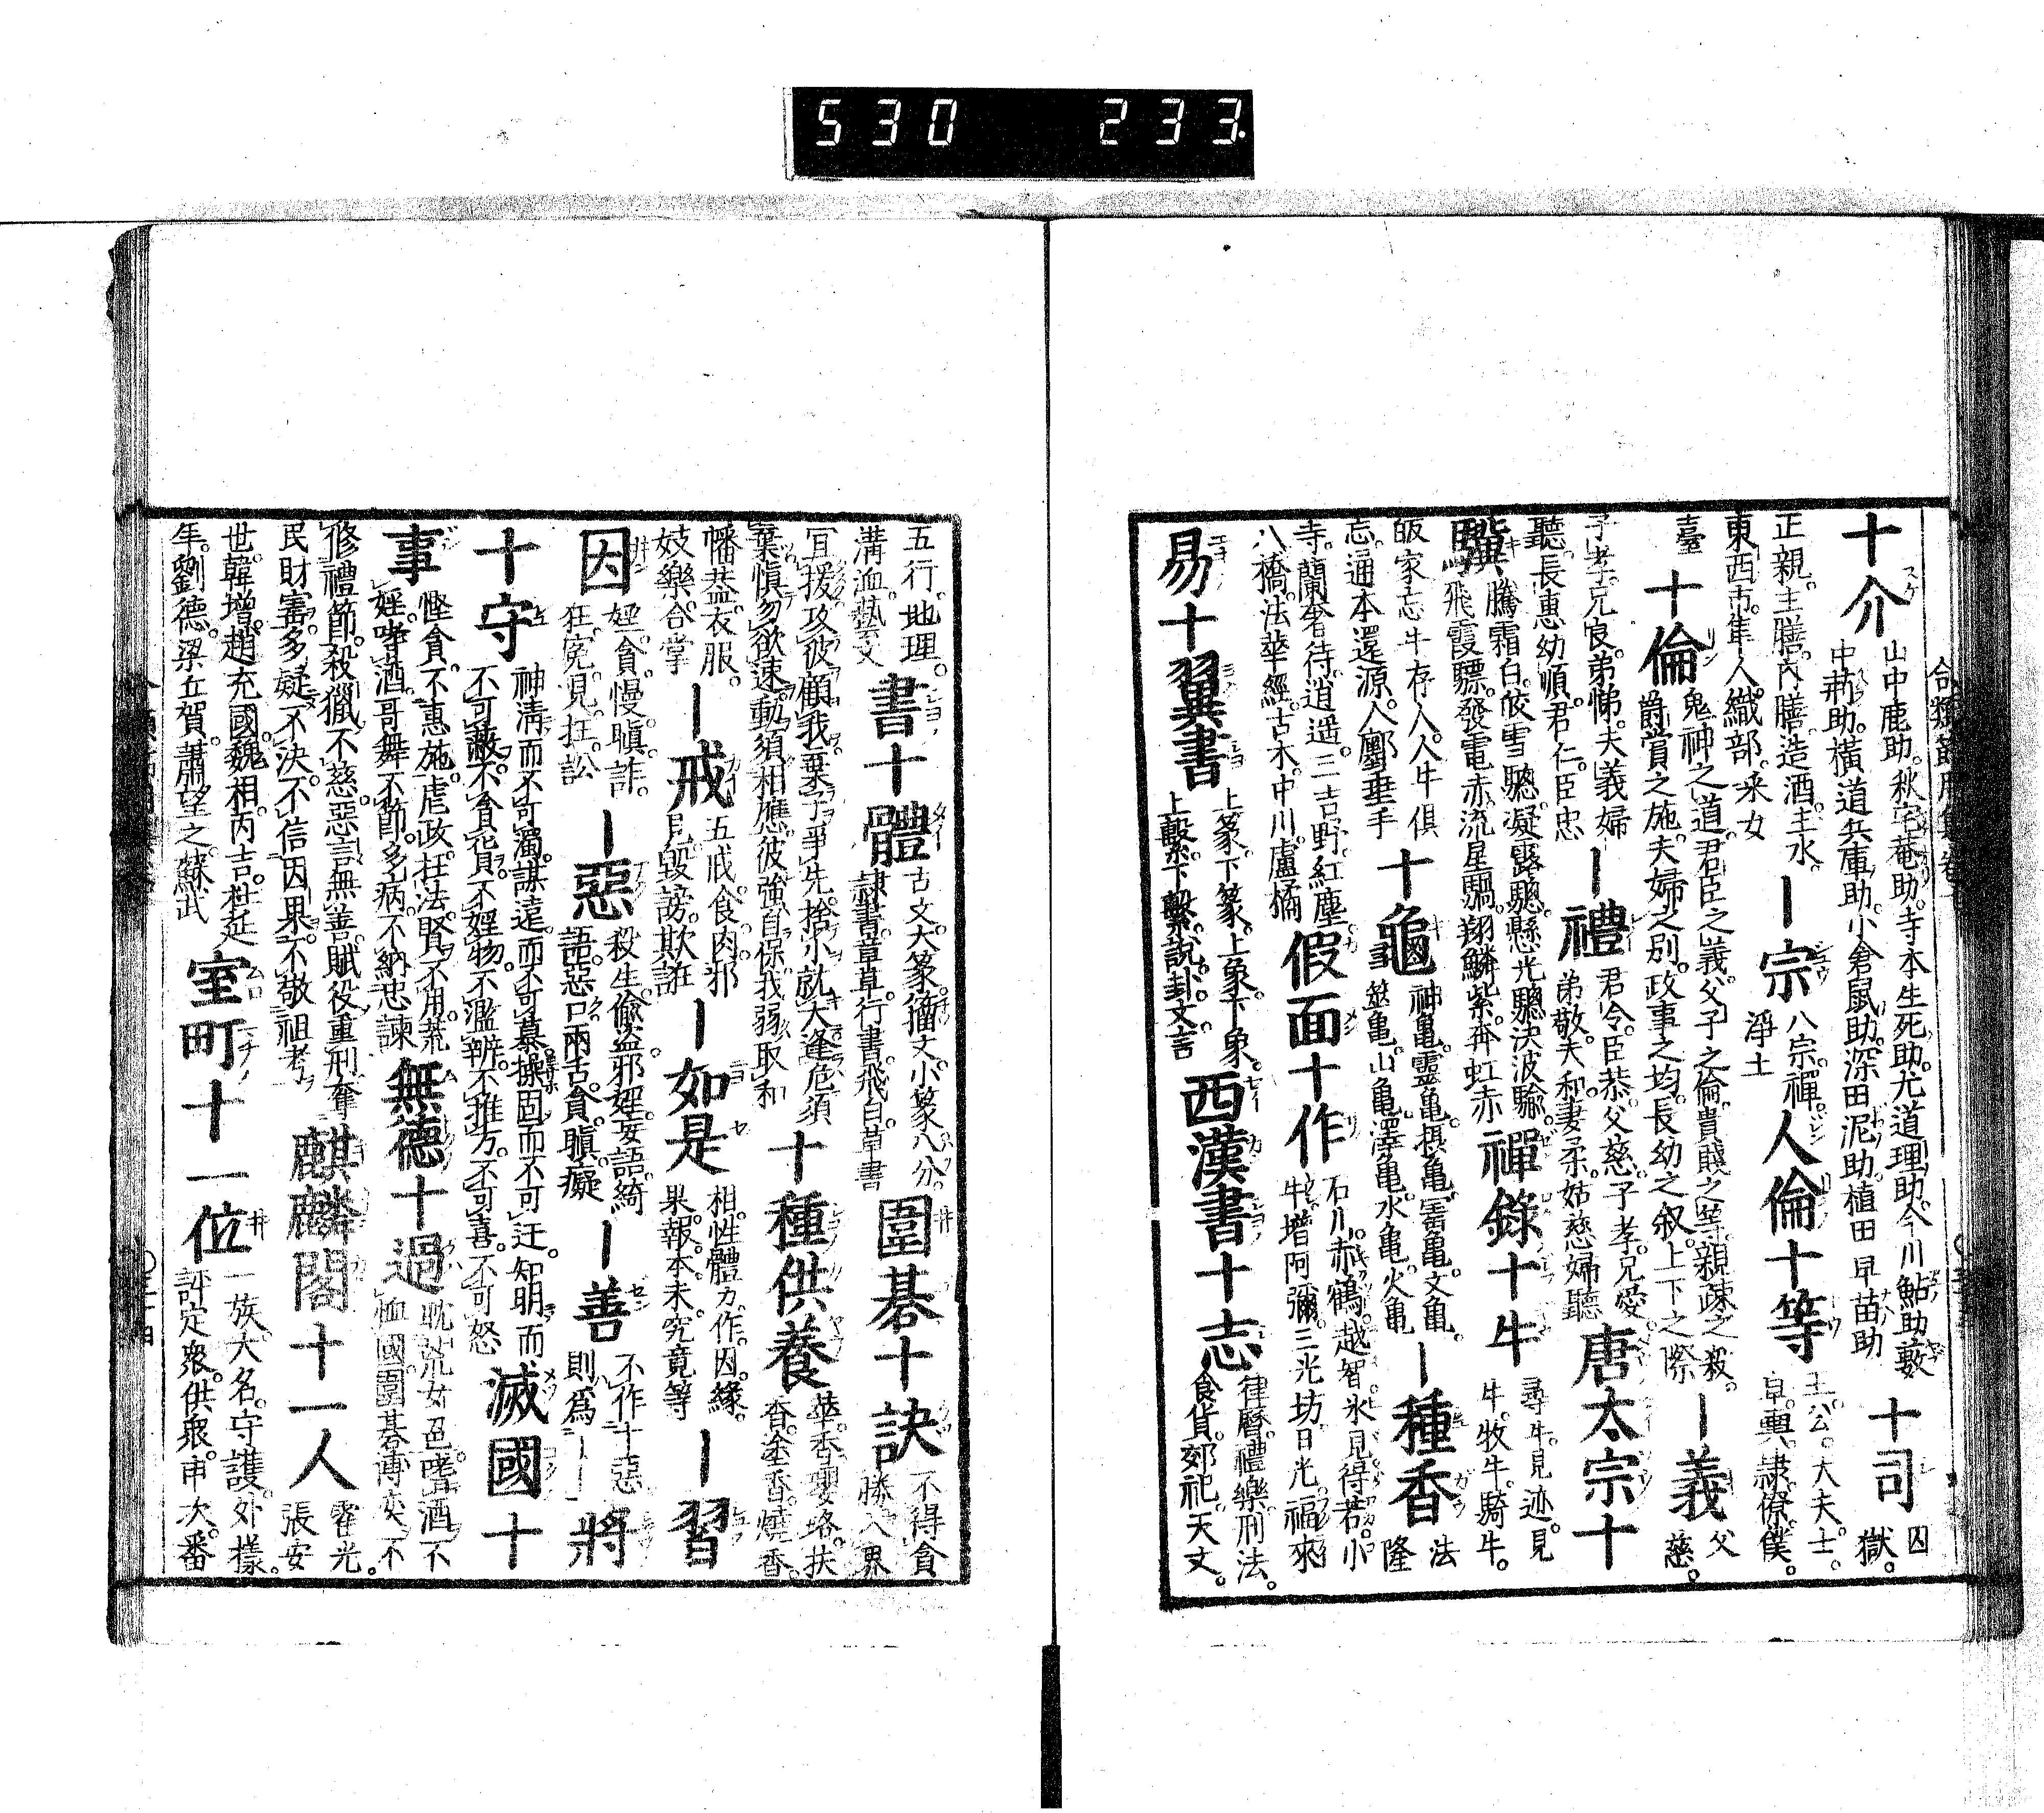 530 233.
合類節用集卷
十介 山中鹿助。秋宅菴助。寺本生死助。尤道理助。今川鮎助。藪
中荊助。橫道兵庫助。小倉鼠助。深田泥助。植田早苗助 十司 囚獄。
正親。主膳。內膳。造酒。主水。
東西市。隼人。織部。采女 ー宗 八宗。禪。淨土 人倫十等 王。公。大夫。士。皁。輿。隸。僚。僕。
臺 十倫 鬼神之道。君臣之義。父子之倫。貴賤之等。親疎之殺。
爵賞之施。夫婦之別。政事之均。長幼之叙。上下之際 ー義 父慈。
子孝。兄良。弟悌。夫義。婦
聽。長惠。幼順。君仁。臣忠 ー禮 君令。臣恭。父慈。子孝。兄愛。
弟敬。夫和。妻柔。姑慈。婦聽 唐太宗十
驥 騰霜白。皎雪驄。凝露驄。懸光驄。決波騟。
飛霞驃。發電赤。流星騧。翔麟紫。奔虹赤 禪錄十牛 尋牛。見迹。見
牛。牧牛。騎牛。
皈家。忘牛存人。人牛俱
忘。返本還源。入鄽垂手 十龜 神龜。靈龜。攝龜。寶龜。文龜。
筮龜。山龜。澤龜。水龜。火龜 ー種香 法隆
寺。蘭奢待。逍遥。三吉野。紅塵。
八橋。法華經。古木。中川。盧橘 假面十作 石川。赤鶴。越智。氷見。得若。小
牛。增阿彌。三光坊。日光。福來
易十翼書 上彖。下彖。上象。下象。
上繫。下繫。說卦。文言 西漢書十志 律曆。禮樂。刑法。
食貨。郊祀。天文。
五行。地理。
溝洫。藝文 書十體 古文。大篆。籀文。小篆。八分。
隷書。章草。行書。飛白。草書 圍碁十訣 不得貪勝。入界
宜援。攻彼顧我。棄子爭先。捨小就大。逢危須
棄。愼勿欲速。動須相應。彼強自保。我弱取和 十種供養 華。香。瓔珞。抹
香。塗香。燒香。
幡蓋。衣服。
妓樂。合掌 ー戒 五戒。食肉。邪
見。毀謗。欺誑 ー如是 相。性。體。力。作。因。緣。
果。報。本末究竟等 ー習
因 婬。貪。慢。瞋。詐。
狂。寃。見。抂。訟 ー惡 殺生。偸盜。邪婬。妄語。綺
語。惡口。兩舌。貪。瞋。癡 ー善 不作十惡
則爲ーー 將
十守 神淸而不可濁。謀遠而不可慕。操固而不可迂。知明而
不可蔽。不貪貨。不婬物。不濫辨。不推方。不可喜。不可怒 滅國十
事 慳貪。不惠施。虐政。抂法。賢不用。荒
婬。嗜酒。哥舞不節。多病。不納忠諫 無德十過 耽荒女色。嗜酒不
恤國。圍碁博奕不
修禮節。殺獵不慈。惡言無善。賦役重刑奪
民財寡。多疑不決。不信因果。不敬祖考 麒麟閣十一人 霍光。張安
世。韓增。趙充國。魏相。丙吉。杜延
年。劉德。梁丘賀。蕭望之。蘇武 室町十一位 一族。大名。守護。外樣。
評定衆。供衆。申次。番